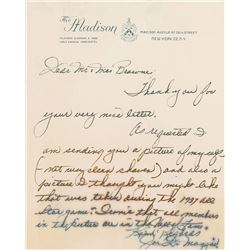 The Madison
MADISON AVENUE AT 58TH STREET
NEW YORK 22, N.Y.
Dear Mr & Mrs Browne
Thank you for
your very nice letter.
As requested I
am sending you a picture of myself
(not very clean shaven) and also a
picture I thought you might like
that was taken during the 1937 all
Star game. I wrote that all members
in the picture are in the
Kind Regards
Joe Di Maggio